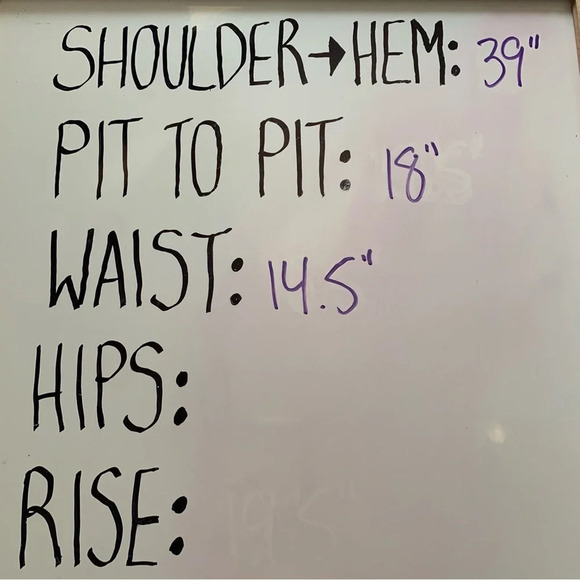 SHOULDER→HEM: 39"
PIT TO PIT: 18"
WAIST: 14.5"
HIPS:
RISE: